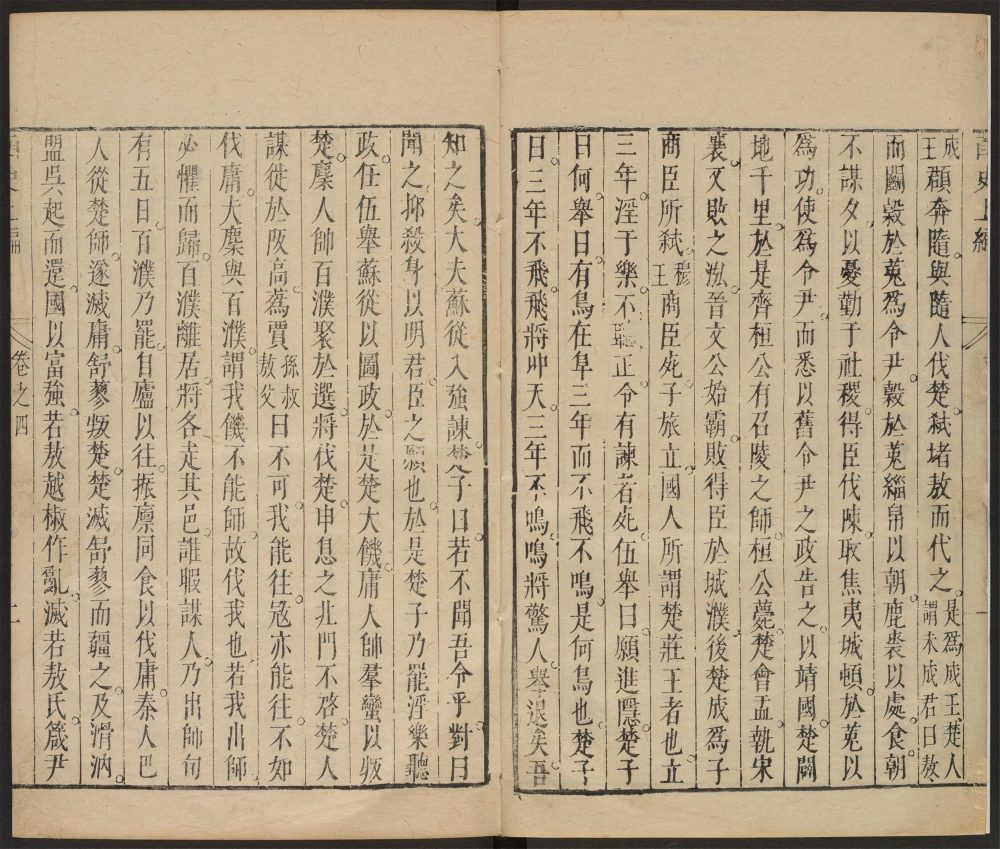 成王頵奔隨與隨人伐楚弒堵敖而代之是爲成王楚人謂未成君曰敖
而鬬穀於菟爲令尹穀於菟緇帛以朝鹿裘以處食朝
不謀夕以憂勤于社稷得臣伐陳取焦夷城頓於菟以
爲功使爲令尹而悉以舊令尹之政告之以靖國楚闢
地千里於是齊桓公有召陵之師桓公薨楚會盂執宋
襄又敗之泓晉文公始霸敗得臣於城濮後楚成爲子
商臣所弒穆王商臣死子旅立國人所謂楚莊王者也立
三年淫于樂不聽正令有諫者死伍舉曰願進隱楚子
曰何舉曰有鳥在阜三年而不飛不鳴是何鳥也楚子
曰三年不飛飛將沖天三年不鳴鳴將驚人舉退矣吾
知之矣大夫蘇從入強諫楚子曰若不聞吾令乎對曰
聞之抑殺身以明君臣之願也於是楚子乃罷淫樂聽
政任伍舉蘇從以圖政於是楚大饑庸人帥羣蠻以叛
楚麇人帥百濮聚於選將伐楚申息之北門不啓楚人
謀徙於阪高蔿賈孫叔敖父曰不可我能往寇亦能往不如
伐庸夫麇與百濮謂我饑不能師故伐我也若我出師
必懼而歸百濮離居將各走其邑誰暇謀人乃出師旬
有五日百濮乃罷自廬以往振廩同食以伐庸秦人巴
人從楚師遂滅庸舒蓼叛楚楚滅舒蓼而疆之及滑汭
盟吳越而還國以富強若敖越椒作亂滅若敖氏箴尹
卷之四